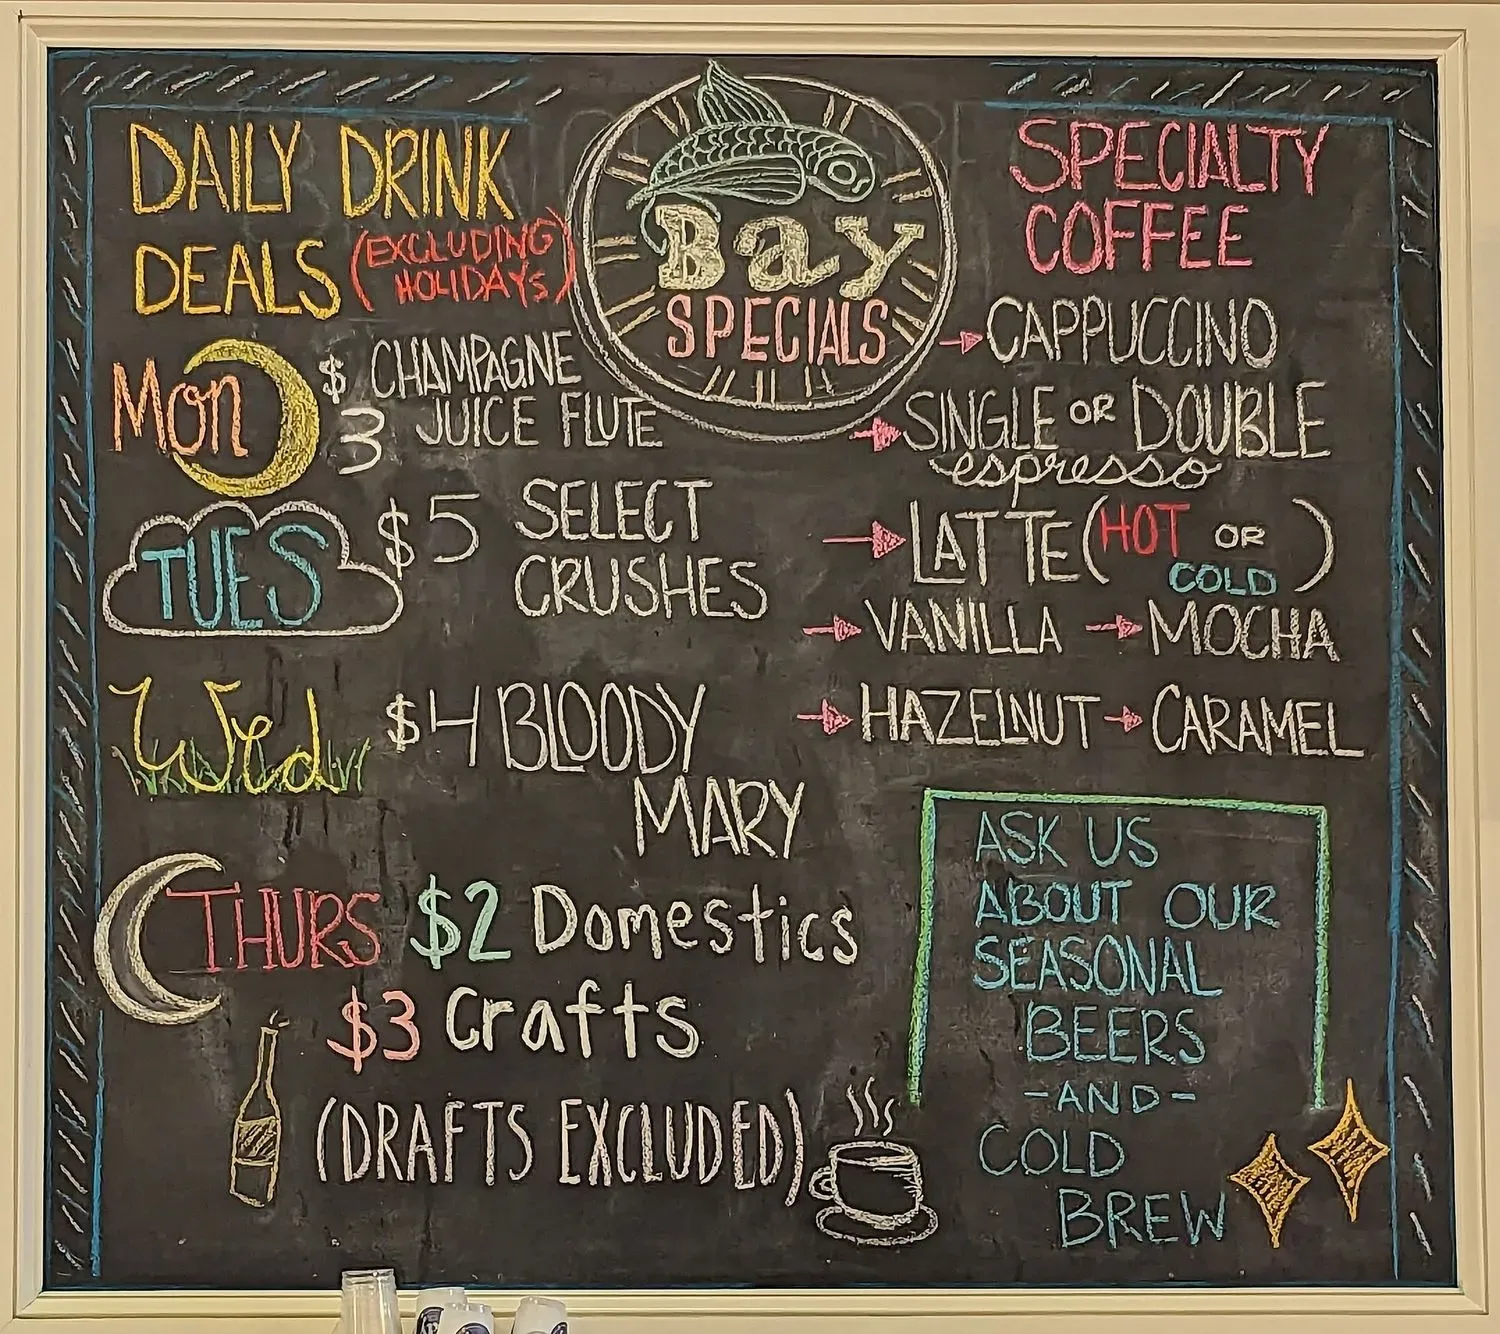 Bay
SPECIALS
DAILY DRINK
DEALS (EXCLUDING
HOLIDAYS)
Mon $3 CHAMPAGNE
JUICE FLUTE
TUES $5 SELECT
CRUSHES
Wed $4 BLOODY
MARY
THURS $2 Domestics
$3 Crafts
(DRAFTS EXCLUDED)
SPECIALTY
COFFEE
CAPPUCCINO
SINGLE OR DOUBLE
espresso
LATTE (HOT OR
COLD)
VANILLA → MOCHA
HAZELNUT → CARAMEL
ASK US
ABOUT OUR
SEASONAL
BEERS
-AND-
COLD
BREW